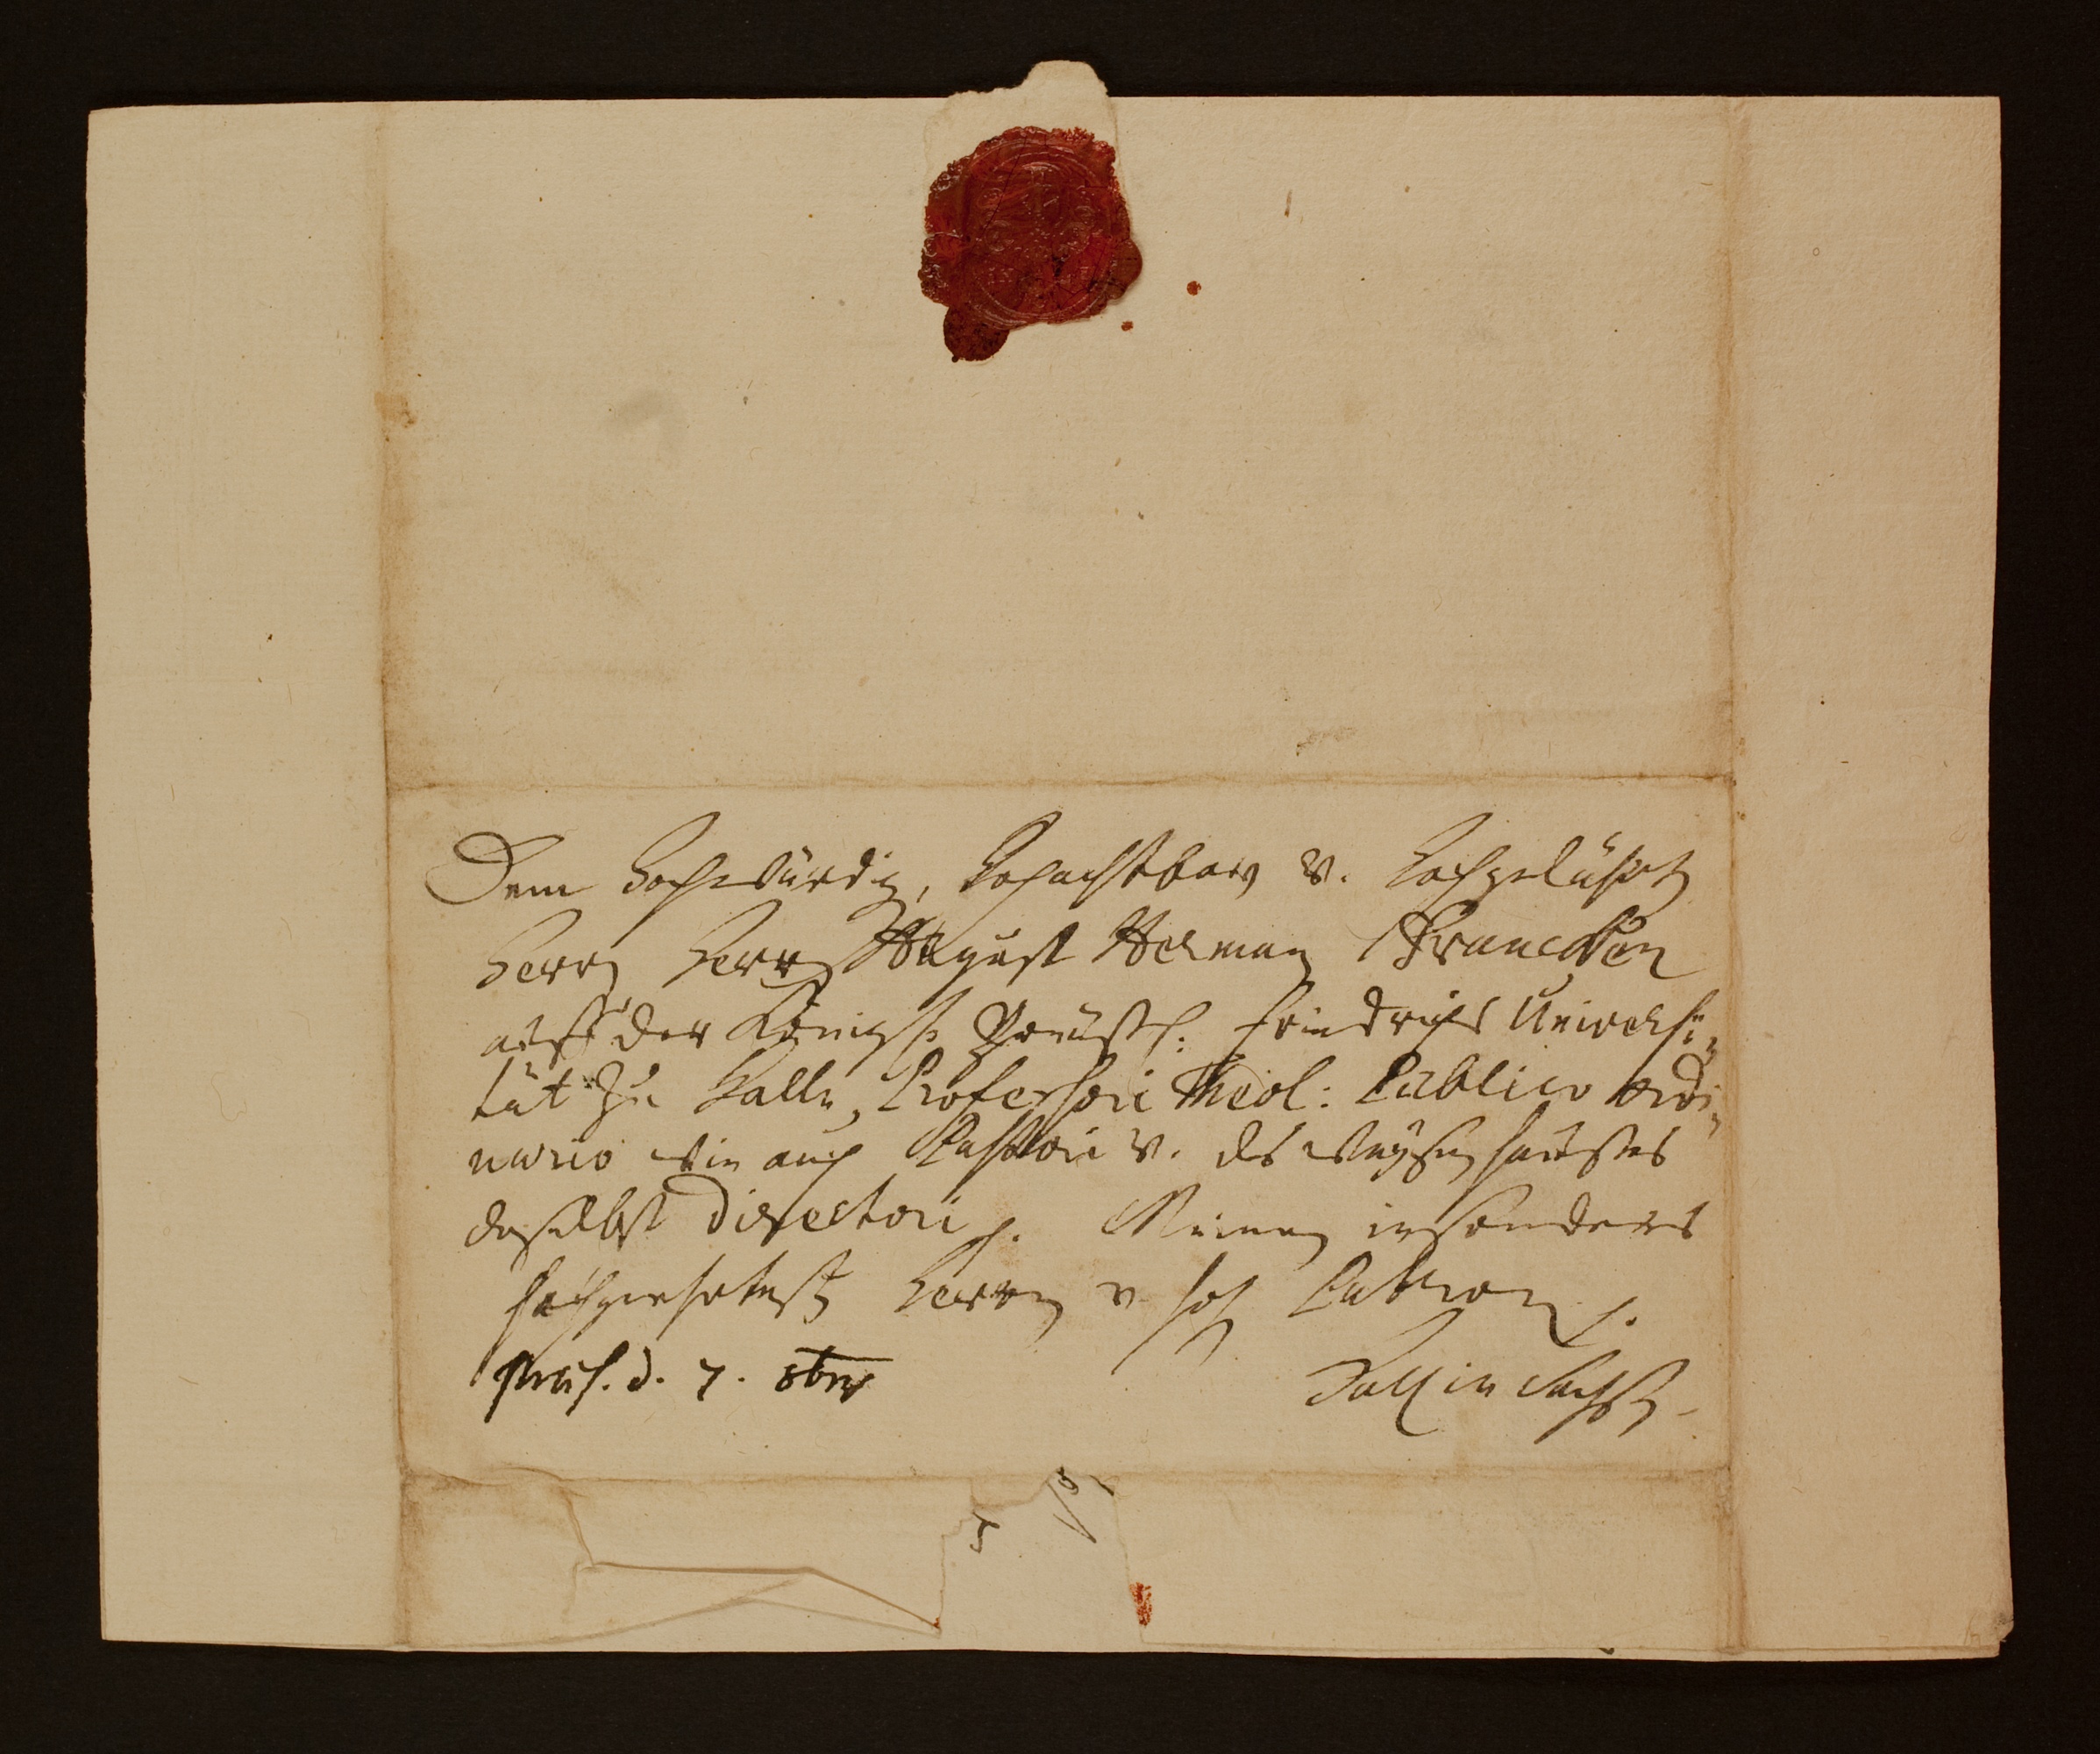 Dem Hochwürdig, Hochachtbarn v. Hochgelährt
Herrn Herrn August Herman Francken
auff der Königl. Preüssl. Friedrichs Universi-
tät zu Halle, Professori Theol: Publico Ordi-
nario wie auch Pastori v. des Waysenhauses
daselbst Directori p. Meinen insonders
hochgeehrtest Herrn v. hoh Patron p.
präs. d. 7. 8br
Hall in Sachsen